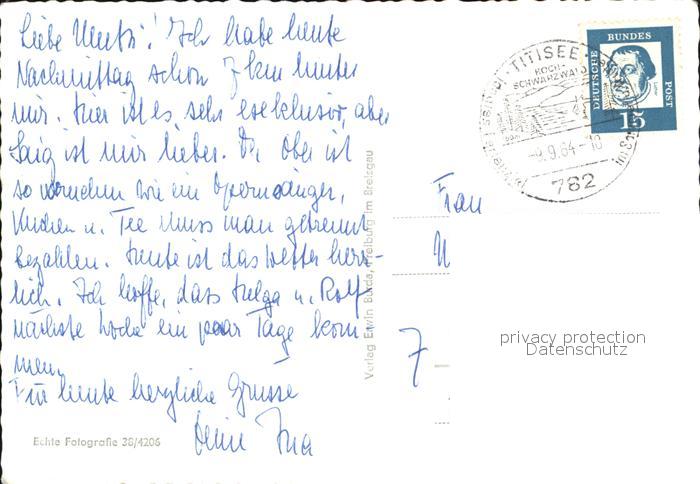 Liebe Mutti! Ich habe heute
Nachmittag schon 7 km hinter
mir. Hier ist es sehr exklusiv, aber
Saig ist mir lieber. Der Ober ist
so vornehm wie ein Opernsänger,
Kuchen u. Tee muss man getrennt
bezahlen. Heute ist das Wetter herr-
lich. Ich hoffe, dass Helga u. Rolf
nächste Woche ein paar Tage kom-
men.
Für heute herzliche Grüsse
Deine Ina
Echte Fotografie 38/4206
Verlag Erwin Burda, Freiburg im Breisgau
TITISEE
HOCH-
SCHWARZWALD
-9.9.64-18
782
DEUTSCHE
BUNDES
POST
15
Frau
7
privacy protection
Datenschutz